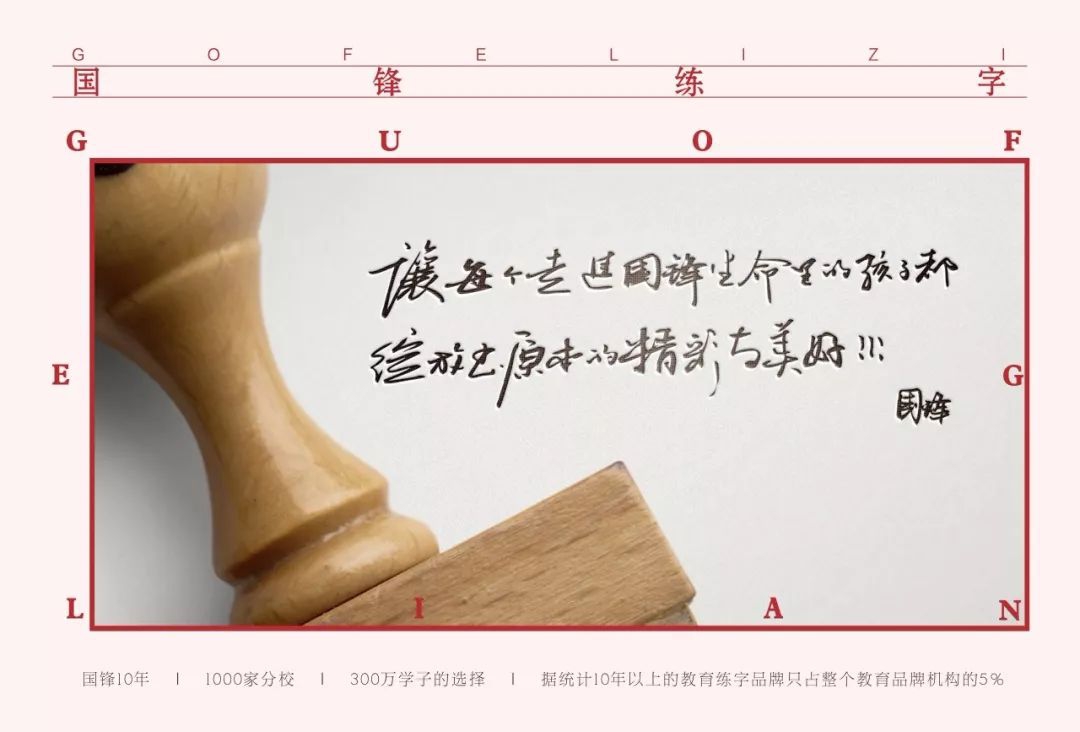 GOFELIZI
国锋练字
GUOF
讓每个走进国锋生命里的孩子都
绽放出原本的精彩与美好!!!
国锋
E G
LIAN
国锋10年 | 1000家分校 | 300万学子的选择 | 据统计10年以上的教育练字品牌只占整个教育品牌机构的5%